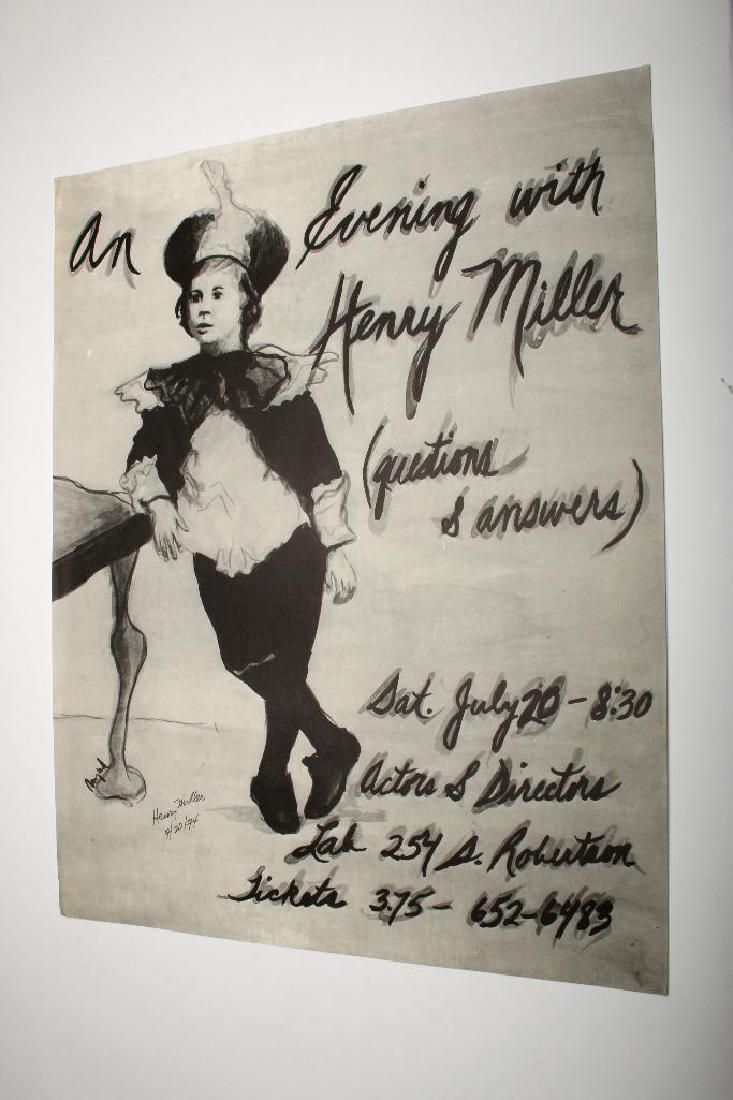 An Evening with
Henry Miller
(questions
& answers)
Sat. July 20 - 8:30
Actors & Directors
Lab 254 S. Robertson
Tickets 3.75 - 652-6483
Henry Miller